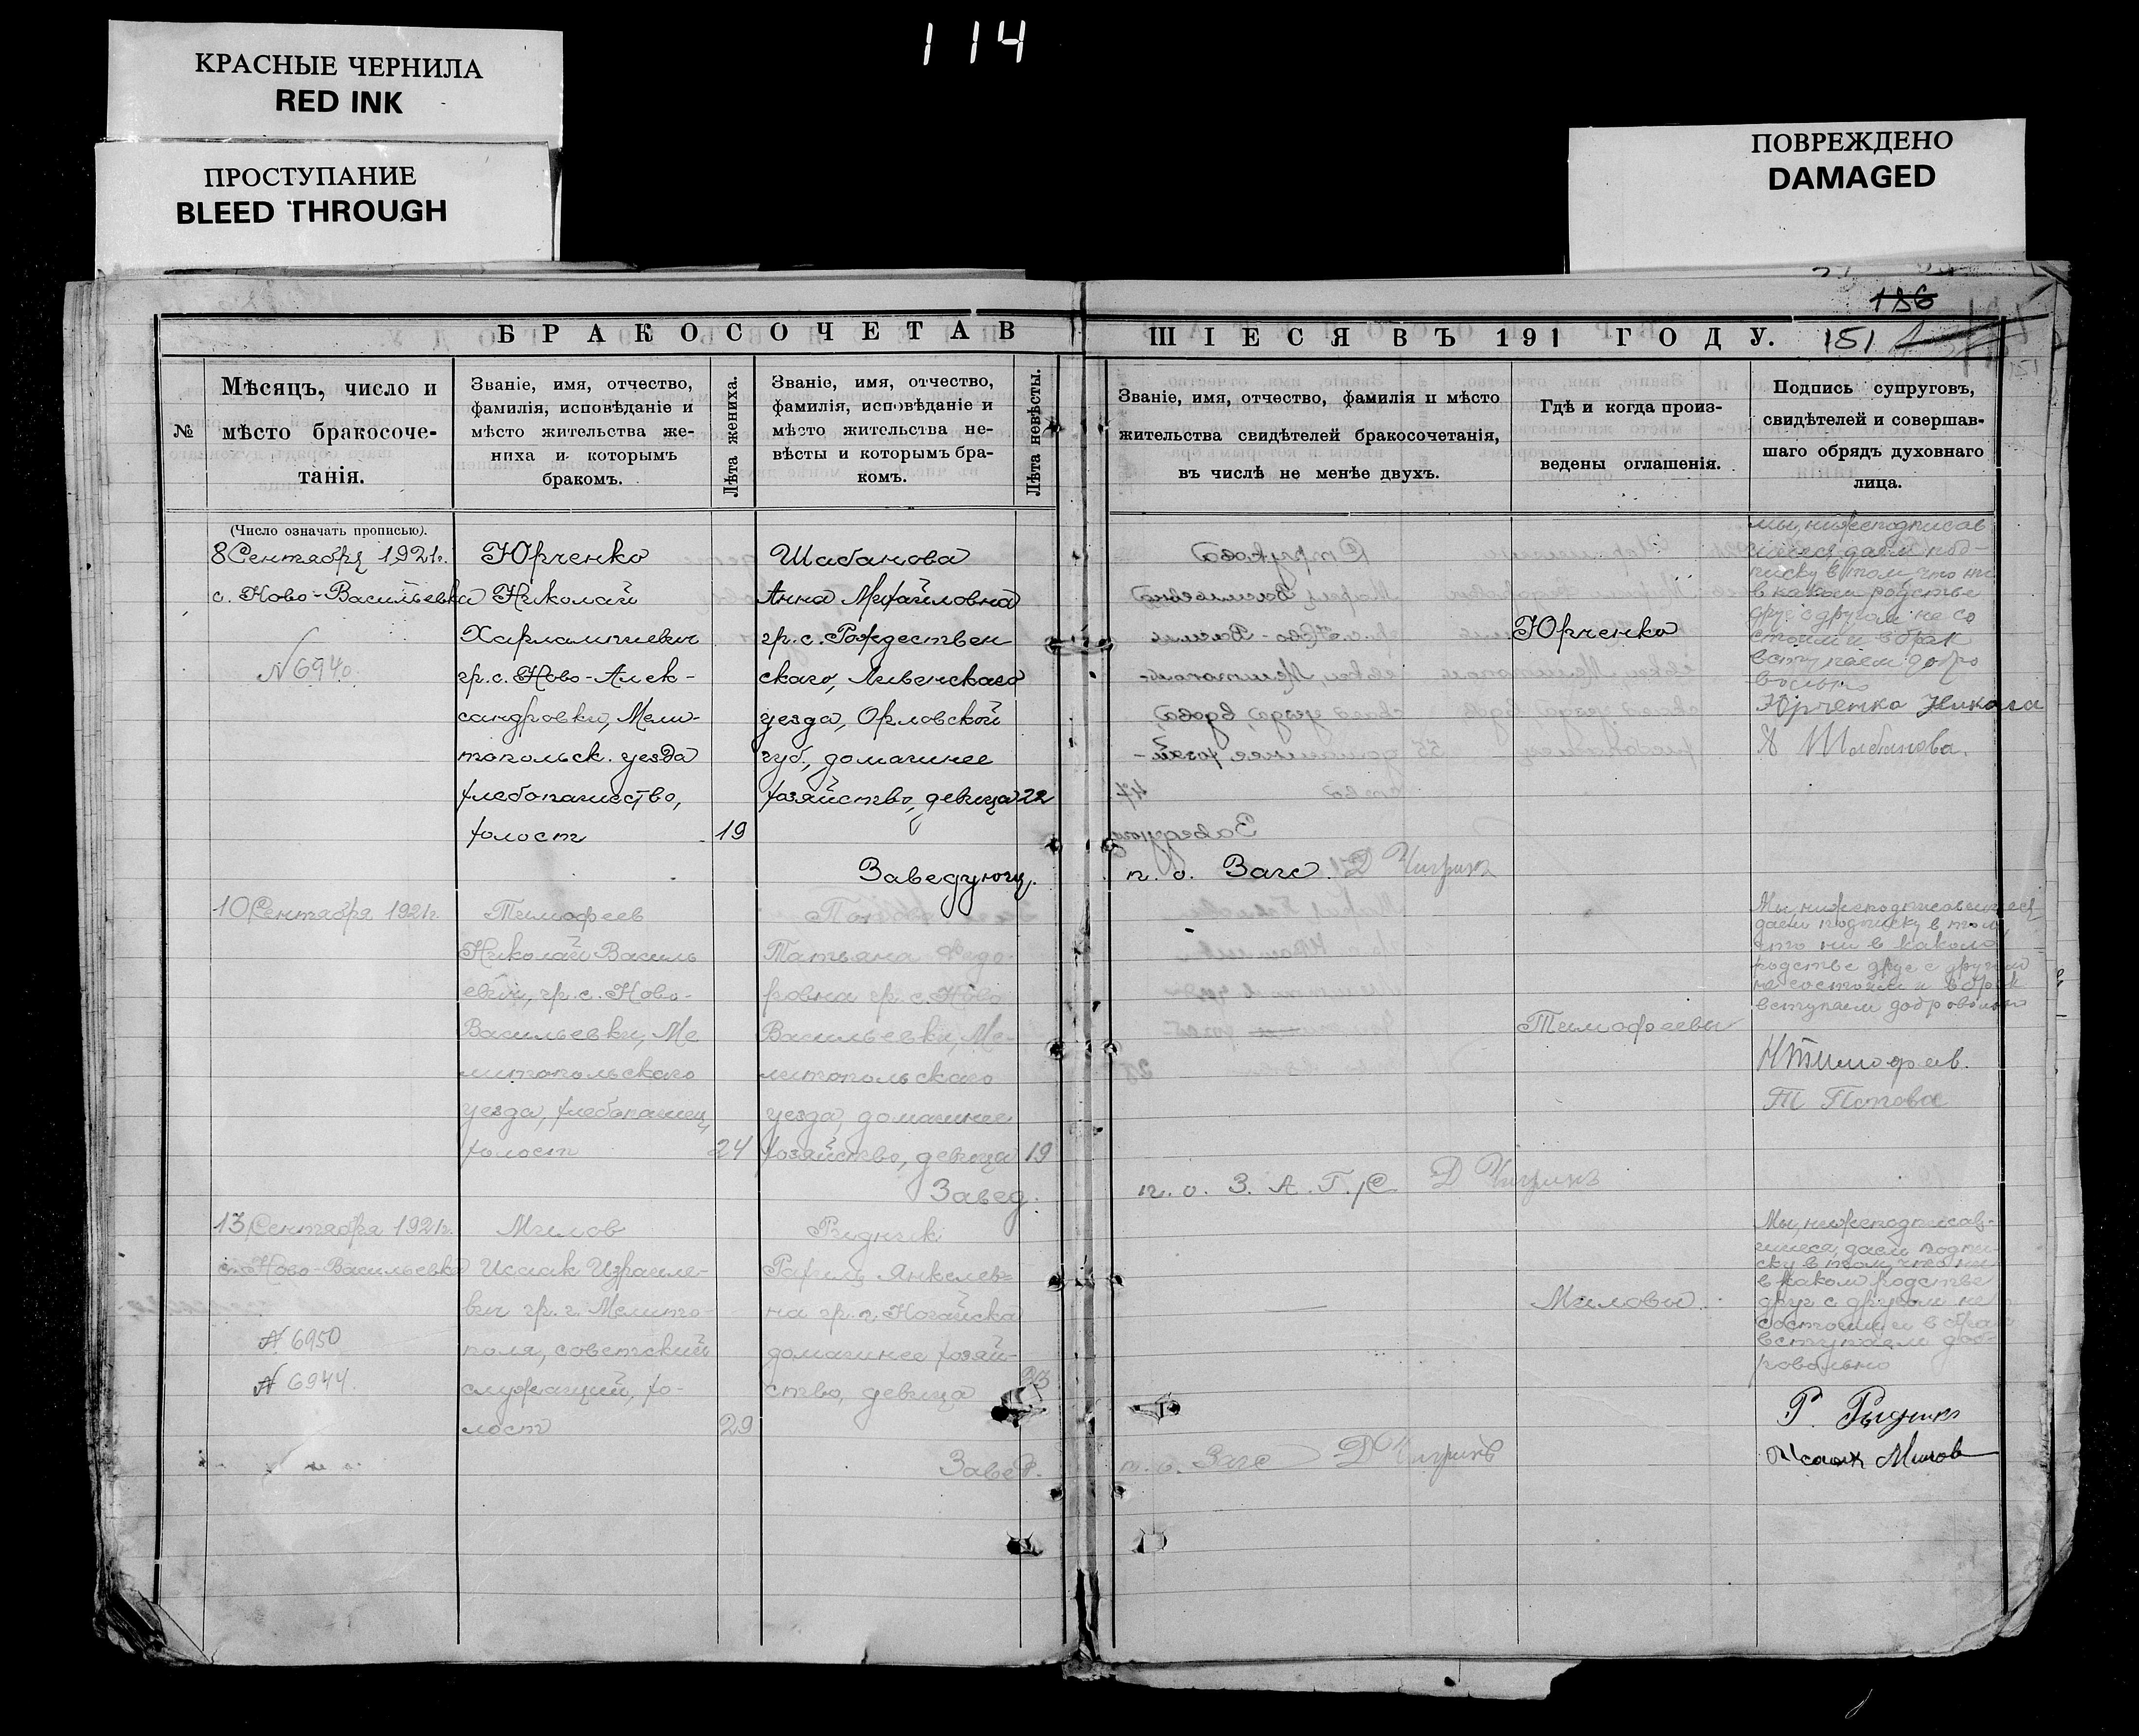 114
КРАСНЫЕ ЧЕРНИЛА
RED INK
ПРОСТУПАНИЕ
BLEED THROUGH
ПОВРЕЖДЕНО
DAMAGED
186
151
БРАКОСОЧЕТАВ
ШІЕСЯ ВЪ 191 ГОДУ.
№
Мѣсяцъ, число и
мѣсто бракосоче-
танія.
(Число означать прописью).
Званіе, имя, отчество,
фамилія, исповѣданіе и
мѣсто жительства же-
ниха и которымъ
бракомъ.
Лѣта жениха.
Званіе, имя, отчество,
фамилія, исповѣданіе и
мѣсто жительства не-
вѣсты и которымъ бра-
комъ.
Лѣта невѣсты.
Званіе, имя, отчество, фамилія и мѣсто
жительства свидѣтелей бракосочетанія,
въ числѣ не менѣе двухъ.
Гдѣ и когда произ-
ведены оглашенія.
Подпись супруговъ,
свидѣтелей и совершав-
шаго обрядъ духовнаго
лица.
8 Сентября 1921г.
с. Ново-Васильевка
N 6940
Юрченко
Николай
Харлампиевич
гр. с. Ново-Алек-
сандровки, Мели-
топольск. уезда
хлебопашество,
холост
19
Шабанова
Анна Михайловна
гр. с. Рождествен
скаго, Ливенскаго
уезда, Орловской
губ., домашнее
хозяйство, девица
22
Юрченко
Мы, нижеподписав
шиеся, даем под-
писку в том, что ни
в каком родстве
друг с другом не со
стоим и в брак
вступаем добро
вольно
Юрченко Никола
А Шабанова.
Заведующ.
п. о. Загс. Д Чигрин
10 Сентября 1921г.
Тимофеев
Николай Василь
евич, гр. с. Ново-
Васильевки, Ме
литопольскаго
уезда, хлебопашец,
холост
24
Татьяна Федо-
ровна гр. с. Ново
Васильевки, Ме-
литопольскаго
уезда, домашнее
хозяйство, девица
19
Тимофеевы
Мы, нижеподписавшиеся
даем подписку в том,
что ни в каком
родстве друг с другом
не состоим и в брак
вступаем добровольно
Н Тимофеев.
Т Попова
Завед.
п. о. З. А. Г. С. Д Чигрин
13 Сентября 1921г.
с. Ново-Васильевка
N 6950
N 6944.
Милов
Исаак Израиле-
вич гр. г. Мелито-
поля, советский
служащий, хо-
лост
29
Рудник
Рахиль Янкелев-
на гр. г. Ногайска
домашнее хозяй-
ство, девица
23
Миловы
Мы, нижеподписав-
шиеся, даем подпи-
ску в том, что ни
в каком родстве
друг с другом не
состоим и в брак
вступаем доб-
ровольно
Исаак Милов
Завед.
п. о. Загс Д Чигрин